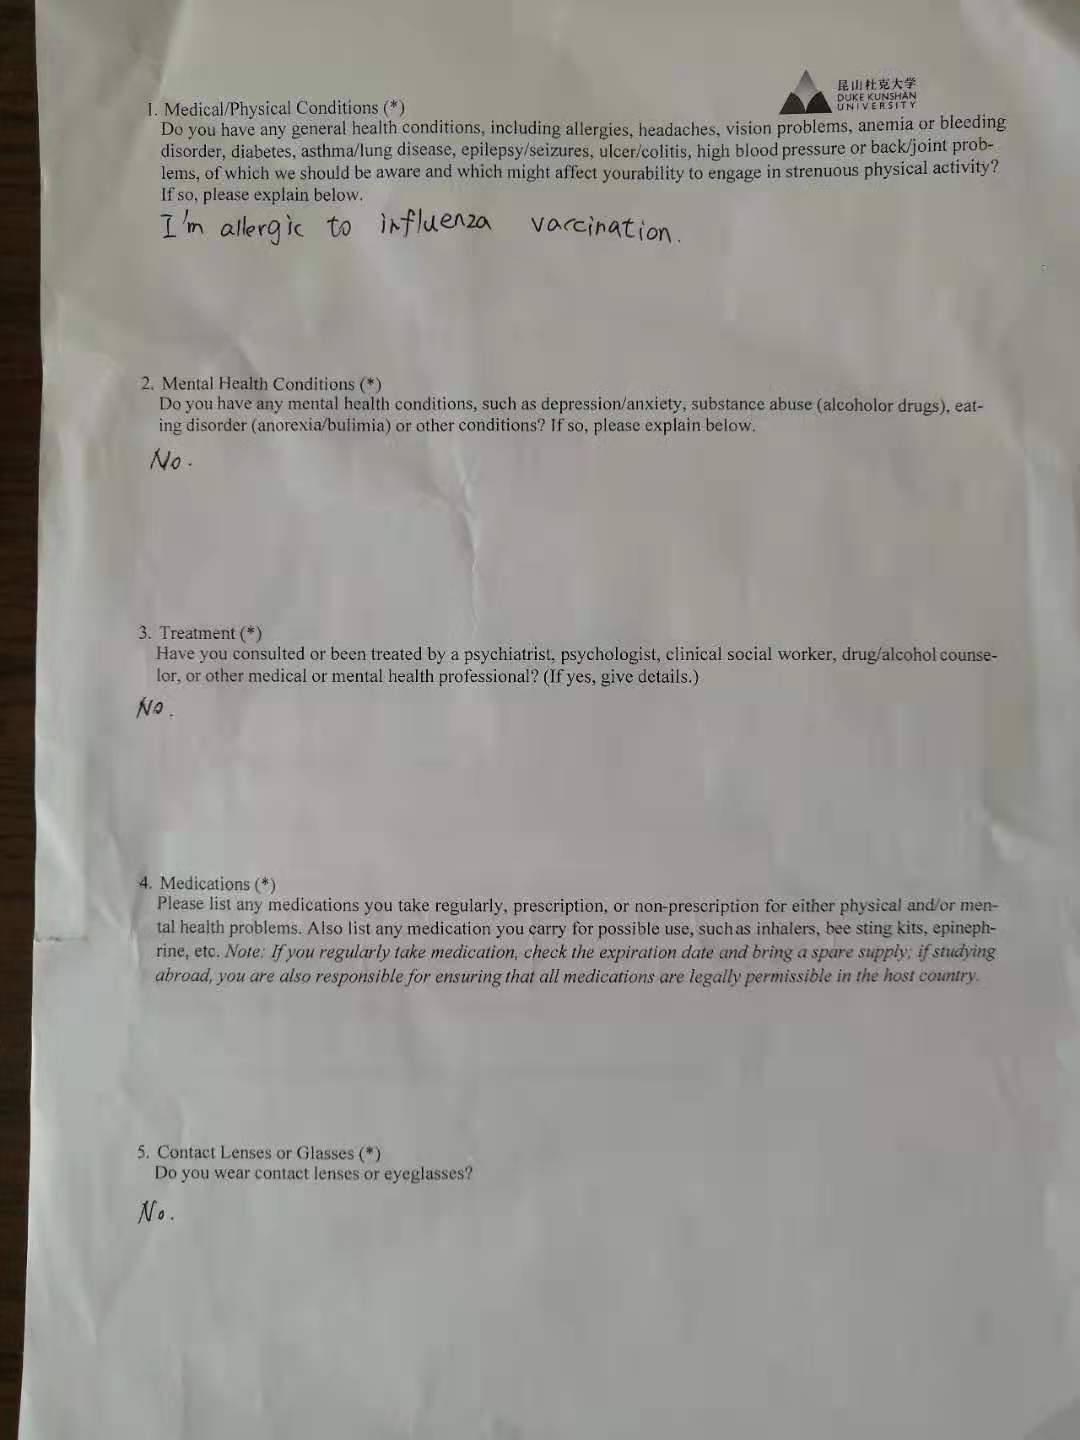 昆山杜克大学
DUKE KUNSHAN
UNIVERSITY
1. Medical/Physical Conditions (*)
Do you have any general health conditions, including allergies, headaches, vision problems, anemia or bleeding
disorder, diabetes, asthma/lung disease, epilepsy/seizures, ulcer/colitis, high blood pressure or back/joint prob-
lems, of which we should be aware and which might affect yourability to engage in strenuous physical activity?
If so, please explain below.
I'm allergic to influenza varcination.
2. Mental Health Conditions (*)
Do you have any mental health conditions, such as depression/anxiety, substance abuse (alcoholor drugs), eat-
ing disorder (anorexia/bulimia) or other conditions? If so, please explain below.
No.
3. Treatment (*)
Have you consulted or been treated by a psychiatrist, psychologist, clinical social worker, drug/alcohol counse-
lor, or other medical or mental health professional? (If yes, give details.)
No.
4. Medications (*)
Please list any medications you take regularly, prescription, or non-prescription for either physical and/or men-
tal health problems. Also list any medication you carry for possible use, such as inhalers, bee sting kits, epineph-
rine, etc. Note: If you regularly take medication, check the expiration date and bring a spare supply; if studying
abroad, you are also responsible for ensuring that all medications are legally permissible in the host country.
5. Contact Lenses or Glasses (*)
Do you wear contact lenses or eyeglasses?
No.